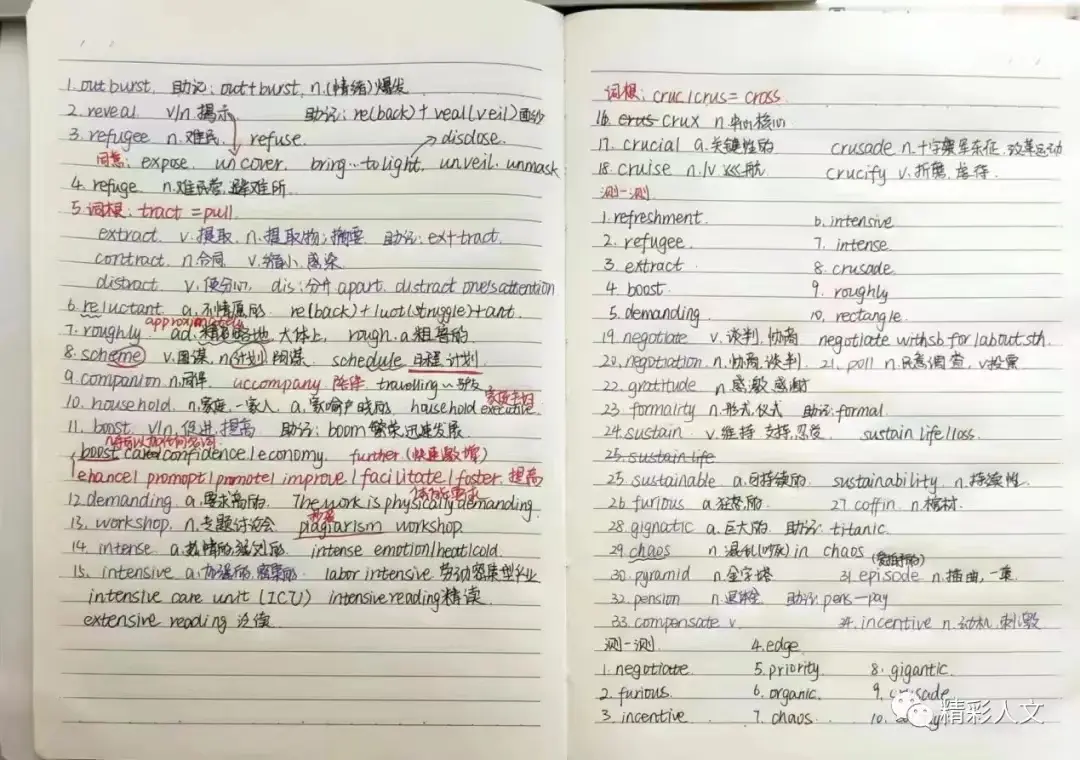 1. outburst. 助记: out+burst, n.(情绪)爆发
2. reveal v/n 揭示 助记: re(back)+veal(veil)面纱
3. refugee n.难民 refuse. disclose.
同意: expose. uncover. bring…to light, unveil. unmask
4. refuge n.难民营, 避难所
5. 词根: tract = pull.
extract v.提取, n.提取物; 摘要 助记: ex+tract.
contract n.合同 v.缩小, 感染
distract v.使分心, dis:分开 apart. distract one's attention
6. reluctant a.不情愿的. re(back)+luct(struggle)+ant.
approximately
7. roughly ad. 粗略地, 大体上, rough. a.粗糙的
8. scheme v.图谋, n.计划 阴谋 schedule 日程 计划
9. companion n.同伴 accompany 陪伴 travelling~驴友
家庭主妇
10. household. n.家庭 一家人, a.家喻户晓的, household executive.
11. boost v/n, 促进, 提高 助记: boom 繁荣, 迅速发展
boost confidence/economy. further (快速激增)
ehance/ promopt/promote/ improve/facilitate/foster. 提高
12. demanding a.要求高的, The work is physically demanding.
13. workshop n.专题讨论会 plagiarism workshop
14. intense a.热情的, 强烈的 intense emotion/heat/cold.
15. intensive a.加强的, 密集的 labor intensive 劳动密集型企业
intensive care unit (ICU) intensive reading精读
extensive reading 泛读
词根: cruc/crus = cross
16. crux n.中心 核心
17. crucial a.关键性的 crusade n.十字架军东征, 改革运动
18. cruise n./v 巡航 crucify v.折磨, 虐待.
测一测.
1. refreshment. 6. intensive
2. refugee. 7. intense
3. extract 8. crusade
4. boost 9. roughly
5. demanding 10. rectangle.
19. negotiate v.谈判, 协商 negotiate with sb for/about sth.
20. negotiation n.协商, 谈判. 21. poll n.民意调查, v投票
22. gratitude n.感激 感谢
23. formality n.形式, 仪式 助记: formal
24. sustain v.维持 支持, 忍受 sustain life/loss.
25. sustain life
25. sustainable a.可持续的 sustainability n.持续性.
26. furious a.狂怒的 27. coffin n.棺材
28. gignatic a.巨大的 助记 titanic.
29. chaos n.混乱(状态) in chaos
30. pyramid n.金字塔 31. episode n.插曲, 一集
32. pension n.退休金 助记 pens—pay
33. compensate v. 34. incentive n.动机, 刺激
测一测. 4. edge
1. negotiate 5. priority. 8. gigantic.
2. furious. 6. organic. 9. crusade
3. incentive 7. chaos. 10.
精彩人文